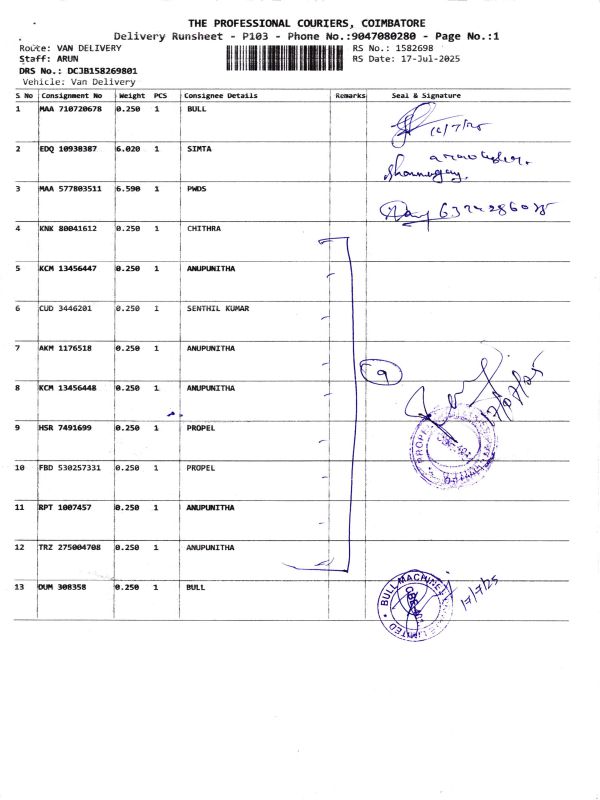 THE PROFESSIONAL COURIERS, COIMBATORE
Delivery Runsheet - P103 - Phone No.:9047080280 - Page No.:1
Route: VAN DELIVERY RS No.: 1582698
Staff: ARUN RS Date: 17-Jul-2025
DRS No.: DCJB158269801
Vehicle: Van Delivery
S No Consignment No Weight PCS Consignee Details Remarks Seal & Signature
1 MAA 710720678 0.250 1 BULL
2 EDQ 10938387 6.020 1 SIMTA
3 MAA 577803511 6.590 1 PWDS
4 KNK 80041612 0.250 1 CHITHRA
5 KCM 13456447 0.250 1 ANUPUNITHA
6 CUD 3446201 0.250 1 SENTHIL KUMAR
7 AKM 1176518 0.250 1 ANUPUNITHA
9
8 KCM 13456448 0.250 1 ANUPUNITHA 17/07/25
9 HSR 7491699 0.250 1 PROPEL
PROPEL
10 FBD 530257331 0.250 1 PROPEL
11 RPT 1007457 0.250 1 ANUPUNITHA
12 TRZ 275004708 0.250 1 ANUPUNITHA
13 DUM 308358 0.250 1 BULL 17/7/25
BULL MACHINES LIMITED